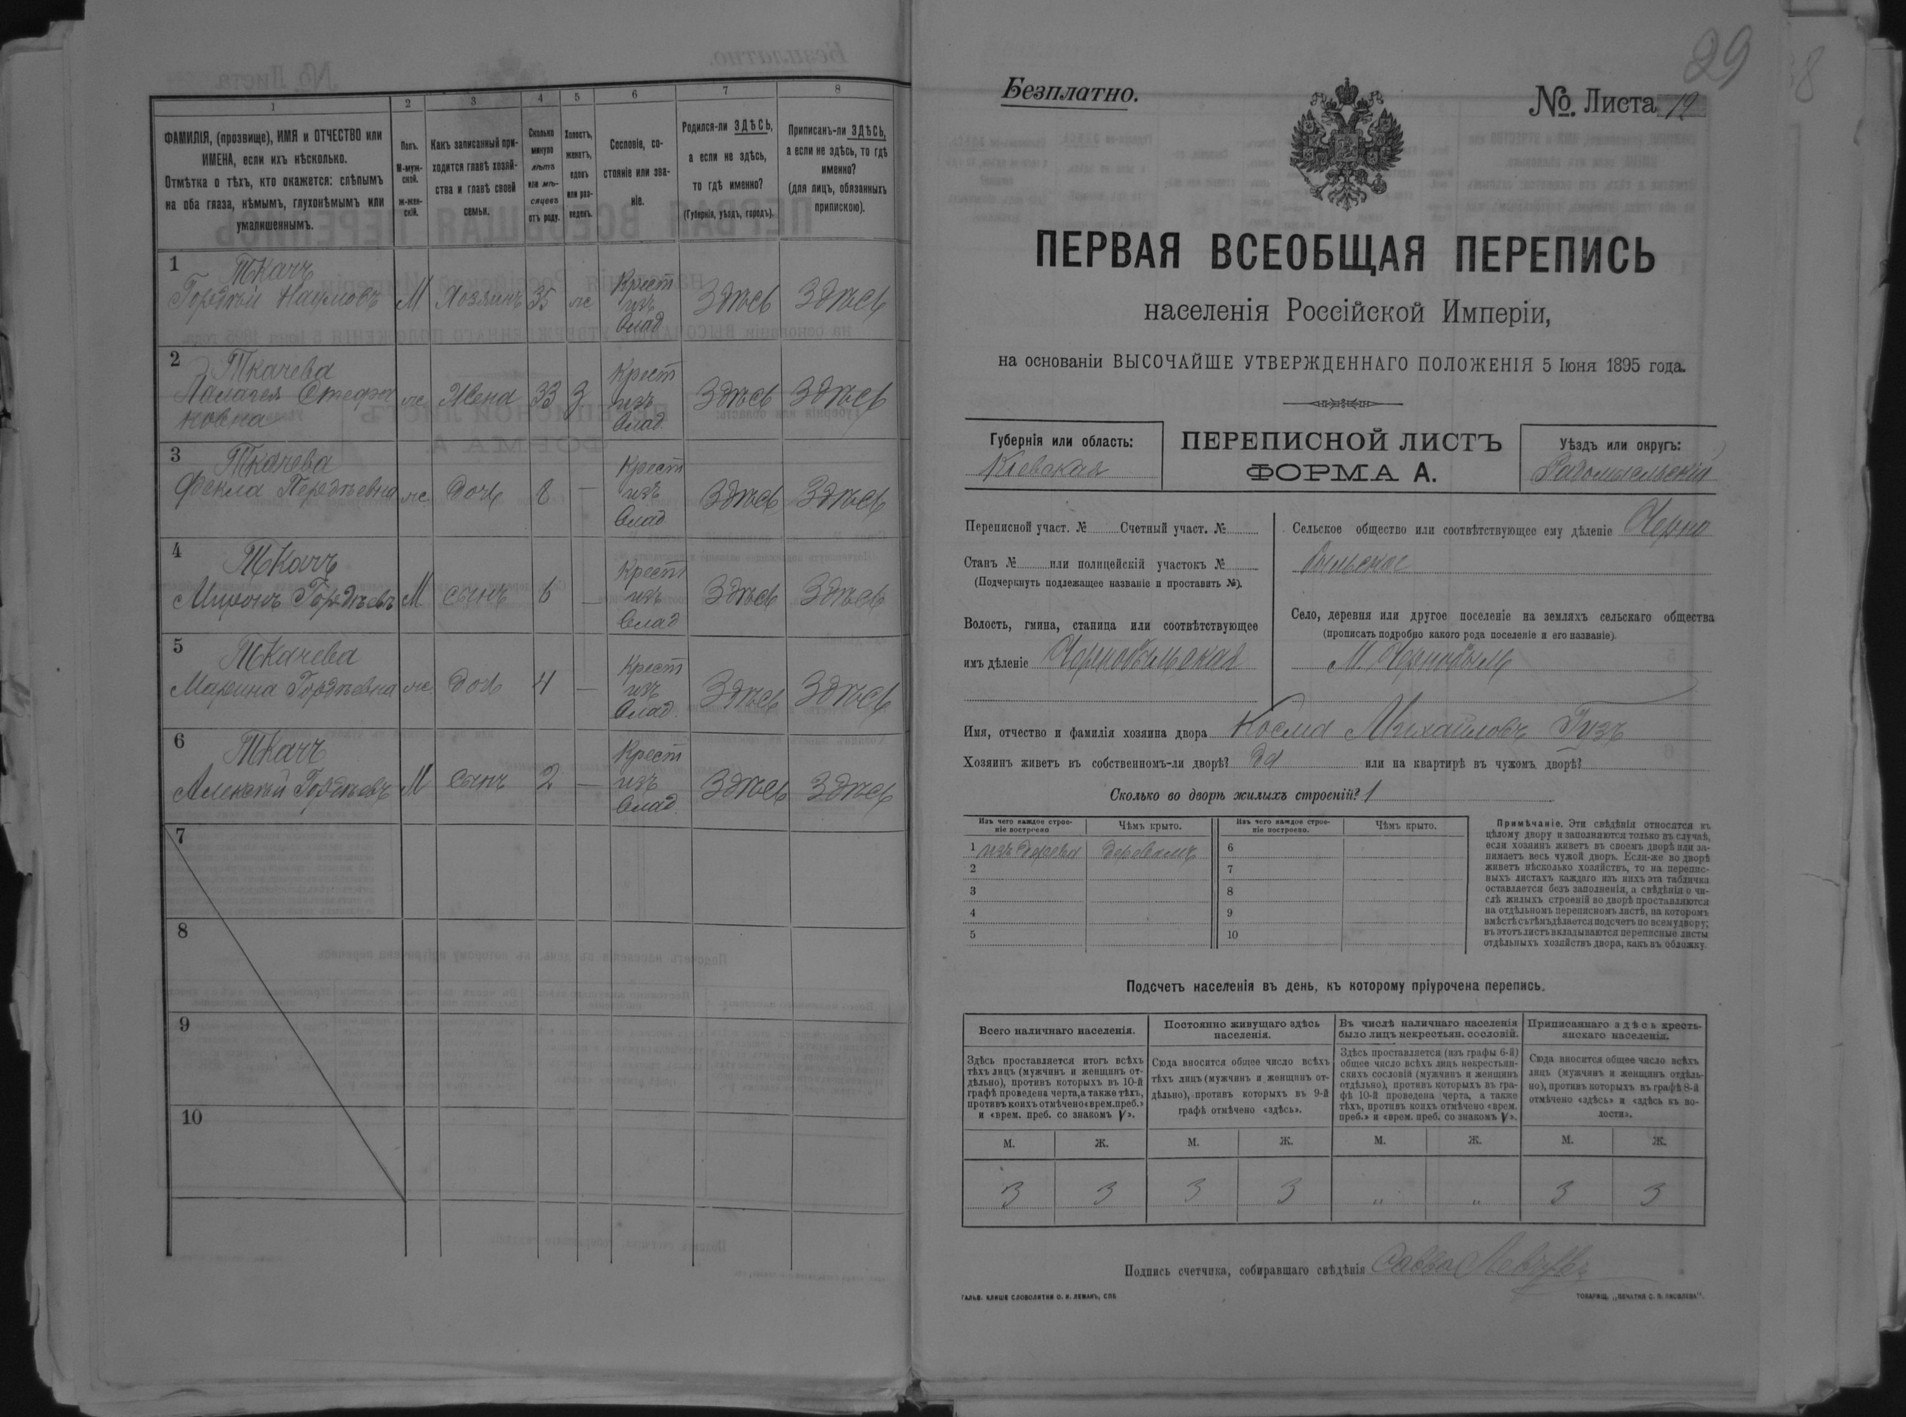 1
2
3
4
5
6
7
8
ФАМИЛІЯ, (прозвище), ИМЯ и ОТЧЕСТВО или
ИМЕНА, если ихъ нѣсколько.
Отмѣтка о тѣхъ, кто окажется: слѣпымъ
на оба глаза, нѣмымъ, глухонѣмымъ или
умалишеннымъ.
Полъ.
М-муж-
ской.
Ж-жен-
скій.
Какъ записанный при-
ходится главѣ хозяй-
ства и главѣ своей
семьи.
Сколько
минуло
лѣтъ
или мѣ-
сяцевъ
отъ роду.
Холостъ,
женатъ,
вдовъ
или раз-
веденъ.
Сословіе, со-
стояніе или зва-
ніе.
Родился-ли ЗДѢСЬ,
а если не здѣсь,
то гдѣ именно?
(Губернія, уѣздъ, городъ).
Приписанъ-ли ЗДѢСЬ,
а если не здѣсь, то гдѣ
именно?
(для лицъ, обязанныхъ
припискою).
1
Ткачъ
Гордѣй Наумовъ М Хозяинъ 35 ж Крест изъ влад Здѣсь Здѣсь
2
Ткачева
Палагея Стефа
новна ж Жена 33 З Крест изъ влад Здѣсь Здѣсь
3
Ткачева
Фекла Гордѣевна ж дочь 8 — Крест изъ влад Здѣсь Здѣсь
4
Ткачъ
Миронъ Гордѣевъ М сынъ 6 — Крест изъ влад Здѣсь Здѣсь
5
Ткачева
Марина Гордѣевна ж дочь 4 — Крест изъ влад. Здѣсь Здѣсь
6
Ткачъ
Алексѣй Гордѣевъ М сынъ 2 — Крест изъ влад Здѣсь Здѣсь
7
8
9
10
29
Безплатно.
№ Листа 12
ПЕРВАЯ ВСЕОБЩАЯ ПЕРЕПИСЬ
населенія Россійской Имперіи,
на основаніи ВЫСОЧАЙШЕ УТВЕРЖДЕННАГО ПОЛОЖЕНІЯ 5 Іюня 1895 года.
Губернія или область:
Кіевская
ПЕРЕПИСНОЙ ЛИСТЪ
ФОРМА А.
Уѣздъ или округъ:
Радомысльскій
Переписной участ. № Счетный участ. №
Станъ № или полицейскій участокъ №
(Подчеркнуть подлежащее названіе и проставить №).
Волость, гмина, станица или соотвѣтствующее
имъ дѣленіе Чернобыльская
Сельское общество или соотвѣтствующее ему дѣленіе Черно
быльское
Село, деревня или другое поселеніе на земляхъ сельскаго общества
(прописать подробно какого рода поселеніе и его названіе).
М Чернобыль
Имя, отчество и фамилія хозяина двора Косма Михайловъ Гузъ
Хозяинъ живетъ въ собственномъ-ли дворѣ? Да или на квартирѣ въ чужомъ дворѣ?
Сколько во дворѣ жилыхъ строеній? 1
Изъ чего каждое строе-
ніе построено
Чѣмъ крыто.
Изъ чего каждое строе-
ніе построено.
Чѣмъ крыто.
1 изъ дерева деревомъ 6
2 7
3 8
4 9
5 10
Примѣчаніе. Эти свѣдѣнія относятся къ
цѣлому двору и заполняются только въ случаѣ,
если хозяинъ живетъ въ своемъ дворѣ или за-
нимаетъ весь чужой дворъ. Если-же во дворѣ
живетъ нѣсколько хозяйствъ, то на перепис-
ныхъ листахъ каждаго изъ нихъ эта табличка
оставляется безъ заполненія, а свѣдѣнія о чи-
слѣ жилыхъ строеній во дворѣ проставляются
на отдѣльномъ переписномъ листѣ, на которомъ
вмѣстѣ съ тѣмъ дѣлается подсчетъ по всему двору;
въ этотъ листъ вкладываются переписные листы
отдѣльныхъ хозяйствъ двора, какъ въ обложку.
Подсчетъ населенія въ день, къ которому пріурочена перепись.
Всего наличнаго населенія.
Постоянно живущаго здѣсь
населенія.
Въ числѣ наличнаго населенія
было лицъ некрестьян. сословій.
Приписаннаго здѣсь кресть-
янскаго населенія.
Здѣсь проставляется итогъ всѣхъ
тѣхъ лицъ (мужчинъ и женщинъ от-
дѣльно), противъ которыхъ въ 10-й
графѣ проведена черта, а также тѣхъ,
противъ коихъ отмѣчено «врем. преб.»
и «врем. преб. со знакомъ V».
Сюда вносится общее число всѣхъ
тѣхъ лицъ (мужчинъ и женщинъ от-
дѣльно), противъ которыхъ въ 9-й
графѣ отмѣчено «здѣсь».
Здѣсь проставляется (изъ графы 6-й)
общее число всѣхъ лицъ некрестьян-
скихъ сословій (мужчинъ и женщинъ
отдѣльно), противъ которыхъ въ гра-
фѣ 10-й проведена черта, а также
тѣхъ, противъ коихъ отмѣчено «врем.
преб.» и «врем. преб. со знакомъ V».
Сюда вносится общее число всѣхъ
лицъ (мужчинъ и женщинъ отдѣль-
но), противъ которыхъ въ графѣ 8-й
отмѣчено «здѣсь» и «здѣсь въ во-
лости».
М. Ж. М. Ж. М. Ж. М. Ж.
3 3 3 3 „ „ 3 3
Подпись счетчика, собиравшаго свѣдѣнія Савва
ГАЛЬВ. КЛИШЕ СЛОВОЛИТНИ О. И. ЛЕМАНЪ, СПБ
ТОВАРИЩ. „ПЕЧАТНЯ С. П. ЯКОВЛЕВА".